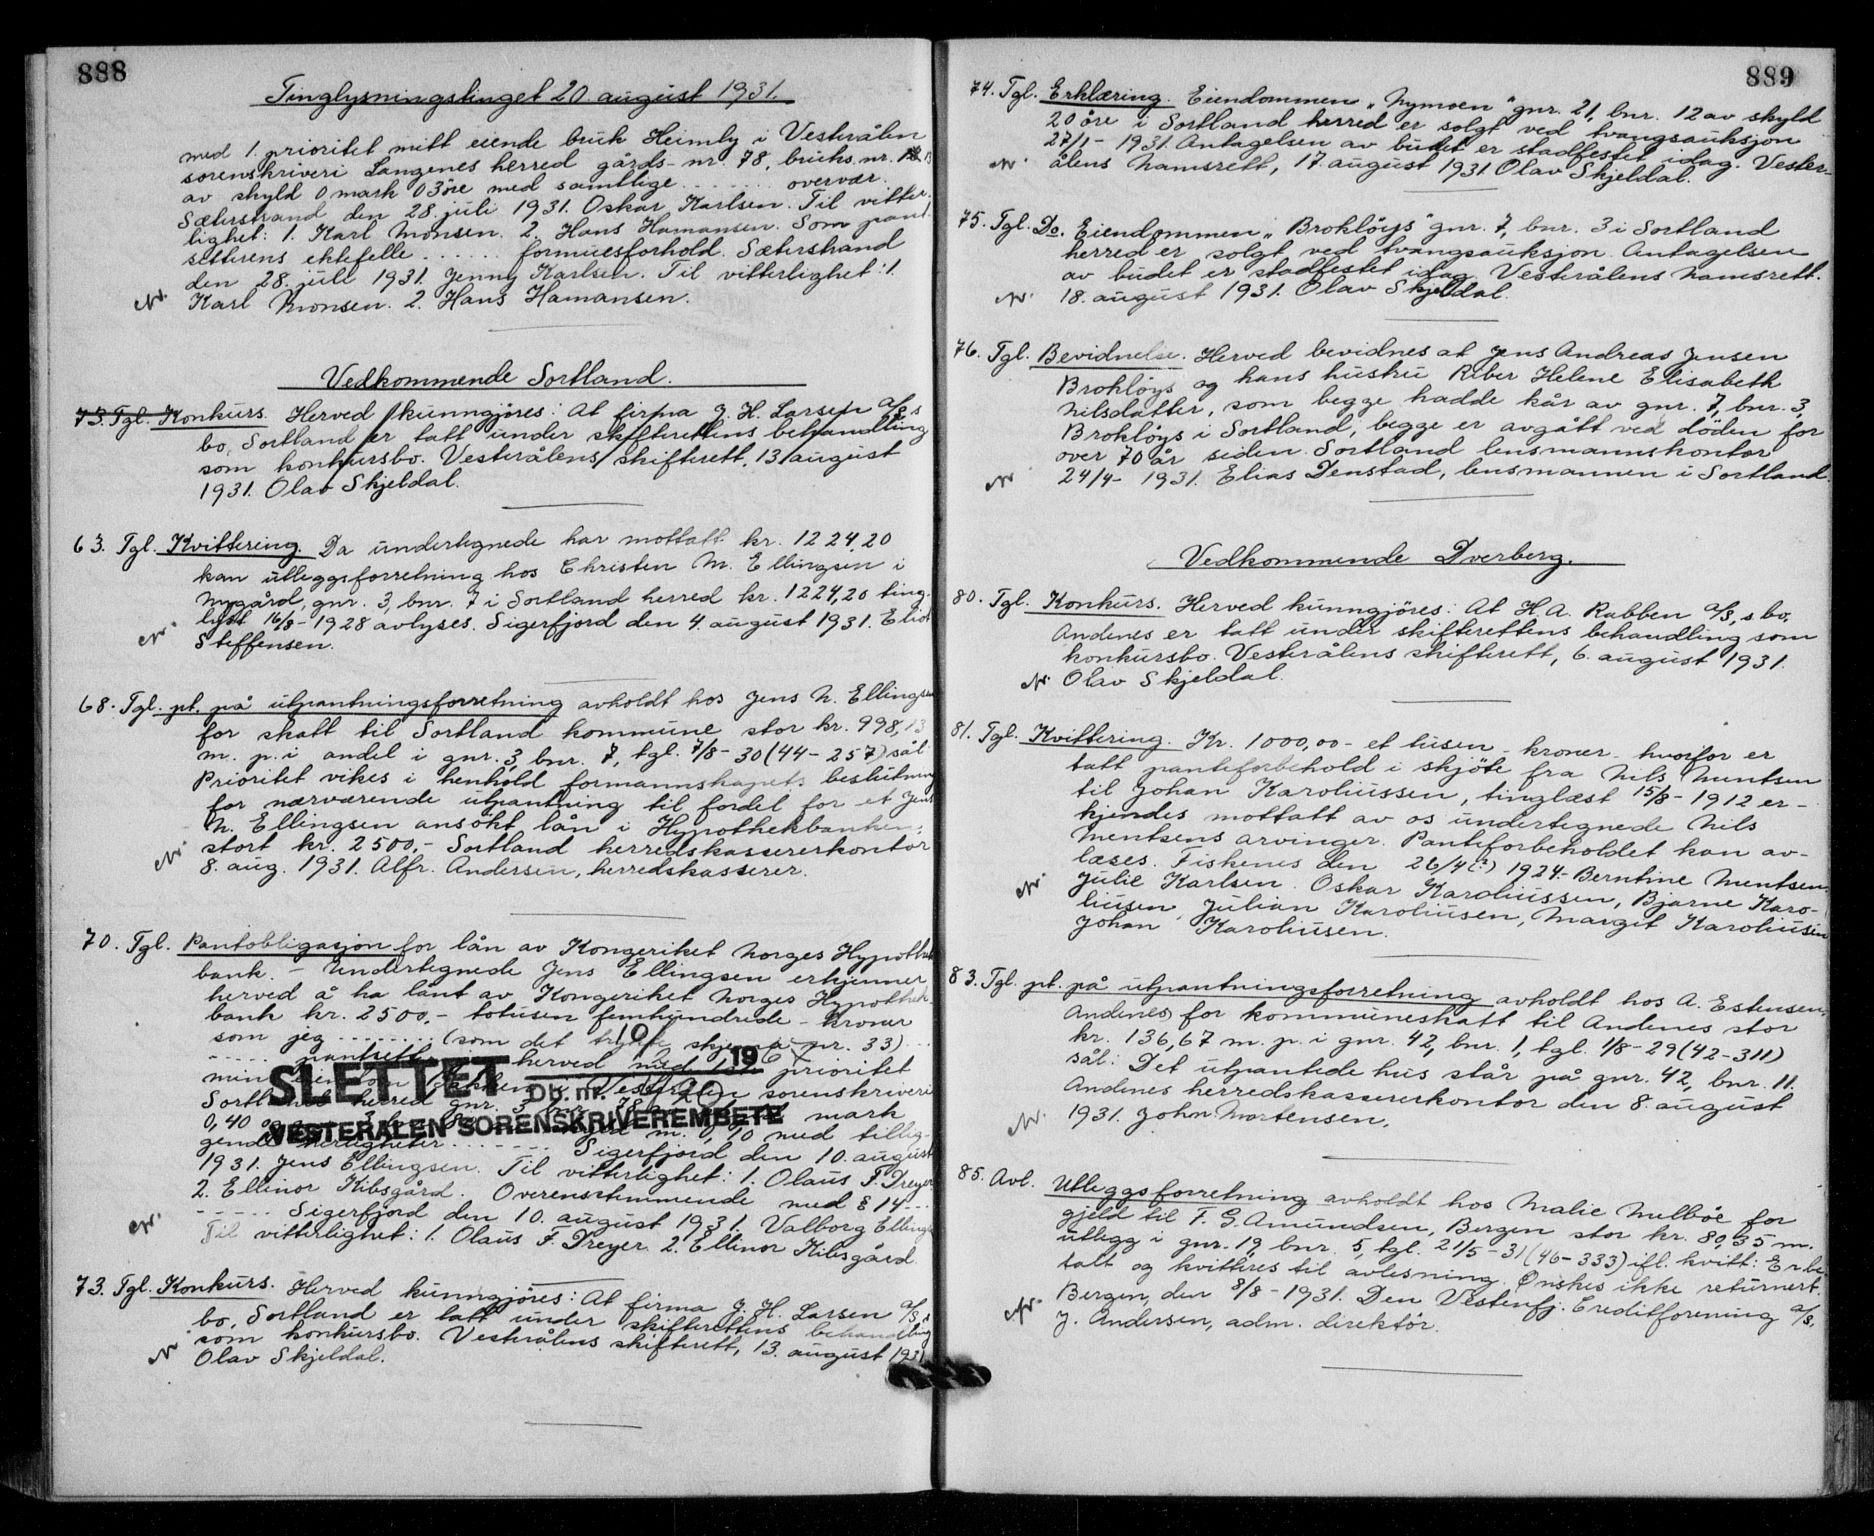 888
Tinglysningstinget 20 august 1931.
med 1. prioritet mitt eiende bruk Heimly i Vesterålen
sorenskriveri Langenes herred gårds-nr. 78, bruks.nr. 13
av skyld 0 mark 03 öre med samtlige ........ overvær.
Sæterstrand den 28. juli 1931. Oskar Karlsen. Til vitter-
lighet: 1. Karl Monsen. 2. Hans Hamansen. Som pant-
setterens ektefelle ...... formuesforhold. Sæterstrand
den 28. juli 1931. Jenny Karlsen. Til vitterlighet: 1.
Karl Monsen. 2. Hans Hamansen.
Vedkommende Sortland.
73. Tgl. Konkurs. Herved kunngjöres: At firma J. H. Larsen A/S s
bo, Sortland er tatt under skifterettens behandling
som konkursbo. Vesterålens skifterett, 13 august
1931. Olav Skjeldal.
63. Tgl. Kvittering. Da undertegnede har mottatt kr. 1224,20
kan utleggsforretning hos Christen M. Ellingsen i
Nygård, gnr. 3, bnr. 7 i Sortland herred kr. 1224,20 ting-
lyst 16/8-1928 avlyses. Sigerfjord den 4. august 1931. Eliot
Steffensen.
68. Tgl. pt. på utpantningsforretning avholdt hos Jens N. Ellingsen
for skatt til Sortland kommune stor kr. 998,13
m. p. i andel i gnr. 3, bnr. 7, tgl. 7/8-30 (44-257) sål:
Prioritet vikes i henhold formannskapets beslutning
for nærværende utpantning til fordel for et Jens
N. Ellingsen ansökt lån i Hypothekbanken,
stort kr. 2500,- Sortland herredskassererkontor
8. aug. 1931. Alfr. Andersen, herredskasserer.
70. Tgl. Pantobligasjon for lån av Kongeriket Norges Hypothek-
bank. - Undertegnede Jens Ellingsen erkjenner
herved å ha lånt av Kongeriket Norges Hypothek-
bank kr. 2500,- totusen femhundrede - kroner
som jeg ......... (som det trykte skjema nr. 33) ...
..... pantsett herved med prioritet
min Vesterålen sorenskriveri
Sortland herred gnr. 3 mark
SLETTET 10/ 19
Db. nr.
VESTERÅLEN SORENSKRIVEREMBETE
0,40 og m. 0,10 med tillig-
gende herligheter ........ Sigerfjord den 10. august
1931. Jens Ellingsen. Til vitterlighet: 1. Olaus F. Dreyer
2. Ellinor Kibsgård. Overensstemmende med § 14 ...
...... Sigerfjord den 10. august 1931. Valborg Ellings
Til vitterlighet: 1. Olaus F. Dreyer 2. Ellinor Kibsgård.
73. Tgl. Konkurs. Herved kunngjöres: At firma J. H. Larsen A/S,s
bo, Sortland er tatt under skifterettens behandling
som konkursbo. Vesterålens skifterett, 13. august 1931
Olav Skjeldal.
889
74. Tgl. Erklæring. Eiendommen "Nymoen" gnr. 21, bnr. 12 av skyld
20 öre i Sortland herred er solgt ved tvangsauksjon
27/1-1931. Antagelsen av budet er stadfestet idag. Vester-
ålens namsrett, 17. august 1931. Olav Skjeldal.
75. Tgl. Do. Eiendommen "Broklöys" gnr. 7, bnr. 3 i Sortland
herred er solgt ved tvangsauksjon. Antagelsen
av budet er stadfestet idag. Vesterålens namsrett.
18. august 1931. Olav Skjeldal.
76. Tgl. Bevidnelse. Herved bevidnes at Jens Andreas Jensen
Broklöys og hans hustru Riber Helene Elisabeth
Nilsdatter, som begge hadde kår av gnr. 7, bnr. 3,
Broklöys i Sortland, begge er avgått ved döden for
over 70 år siden. Sortland lensmannskontor
24/4- 1931. Elias Denstad, lensmannen i Sortland.
Vedkommende Dverberg.
80. Tgl. Konkurs. Herved kunngjöres: At H. A. Rabben A/S,s bo,
Andenes er tatt under skifterettens behandling som
konkursbo. Vesterålens skifterett, 6. august 1931.
Olav Skjeldal.
81. Tgl. Kvittering. Kr. 1000,00 - et tusen - kroner - hvorfor er
tatt panteforbehold i skjöte fra Nils Mentsen
til Johan Karoliussen, tinglæst 15/8-1912 er-
kjendes mottatt av os undertegnede Nils
Mentsens arvinger. Panteforbeholdet kan av-
læses. Fiskenes den 26/4(?) 1924.- Berntine Mentsen,
Julie Karlsen. Oskar Karoliussen, Bjarne Karo-
liusen, Julian Karoliusen, Margit Karoliusen
Johan Karoliusen.
83. Tgl. pt. på utpantningsforretning avholdt hos A. Estensen,
Andenes for kommuneskatt til Andenes stor
kr. 136,67 m. p. i gnr. 42, bnr. 1, tgl. 1/8-29 (42-311)
sål: Det utpantede hus står på gnr. 42, bnr. 11.
Andenes herredskassererkontor den 8. august
1931. John Mortensen.
85. Avl. Utleggsforretning avholdt hos Malie Melböe for
gjeld til F. G. Amundsen, Bergen stor kr. 80,35 m.
utlegg i gnr. 19, bnr. 5, tgl. 21/5-31 (46-333) ifl. kvitt: Er be-
talt og kvitteres til avlesning. Ønskes ikke returnert.
Bergen, den 8/8-1931. Den Vestenfj. Creditforening A/S,
J. Andersen, adm. direktör.